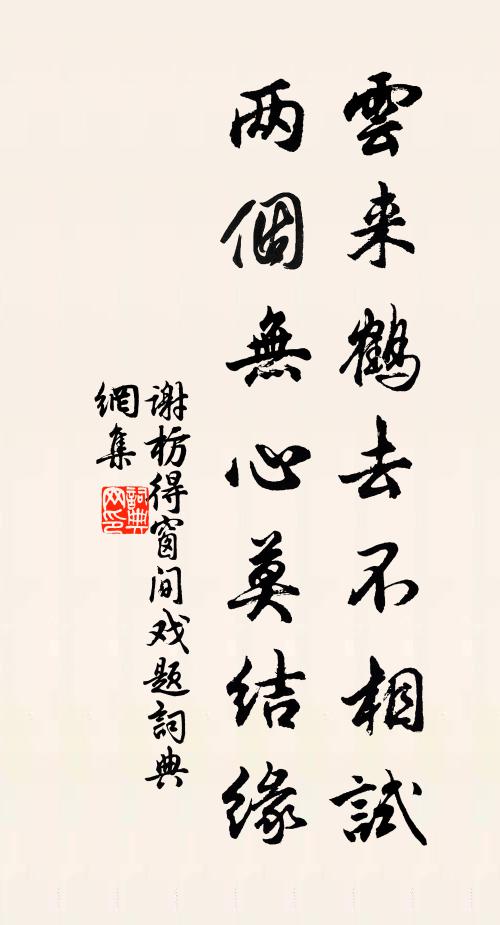 雲来鶴去不相試
两個無心莫結緣
谢枋得窗间戏题詞典
網集
詞典网印